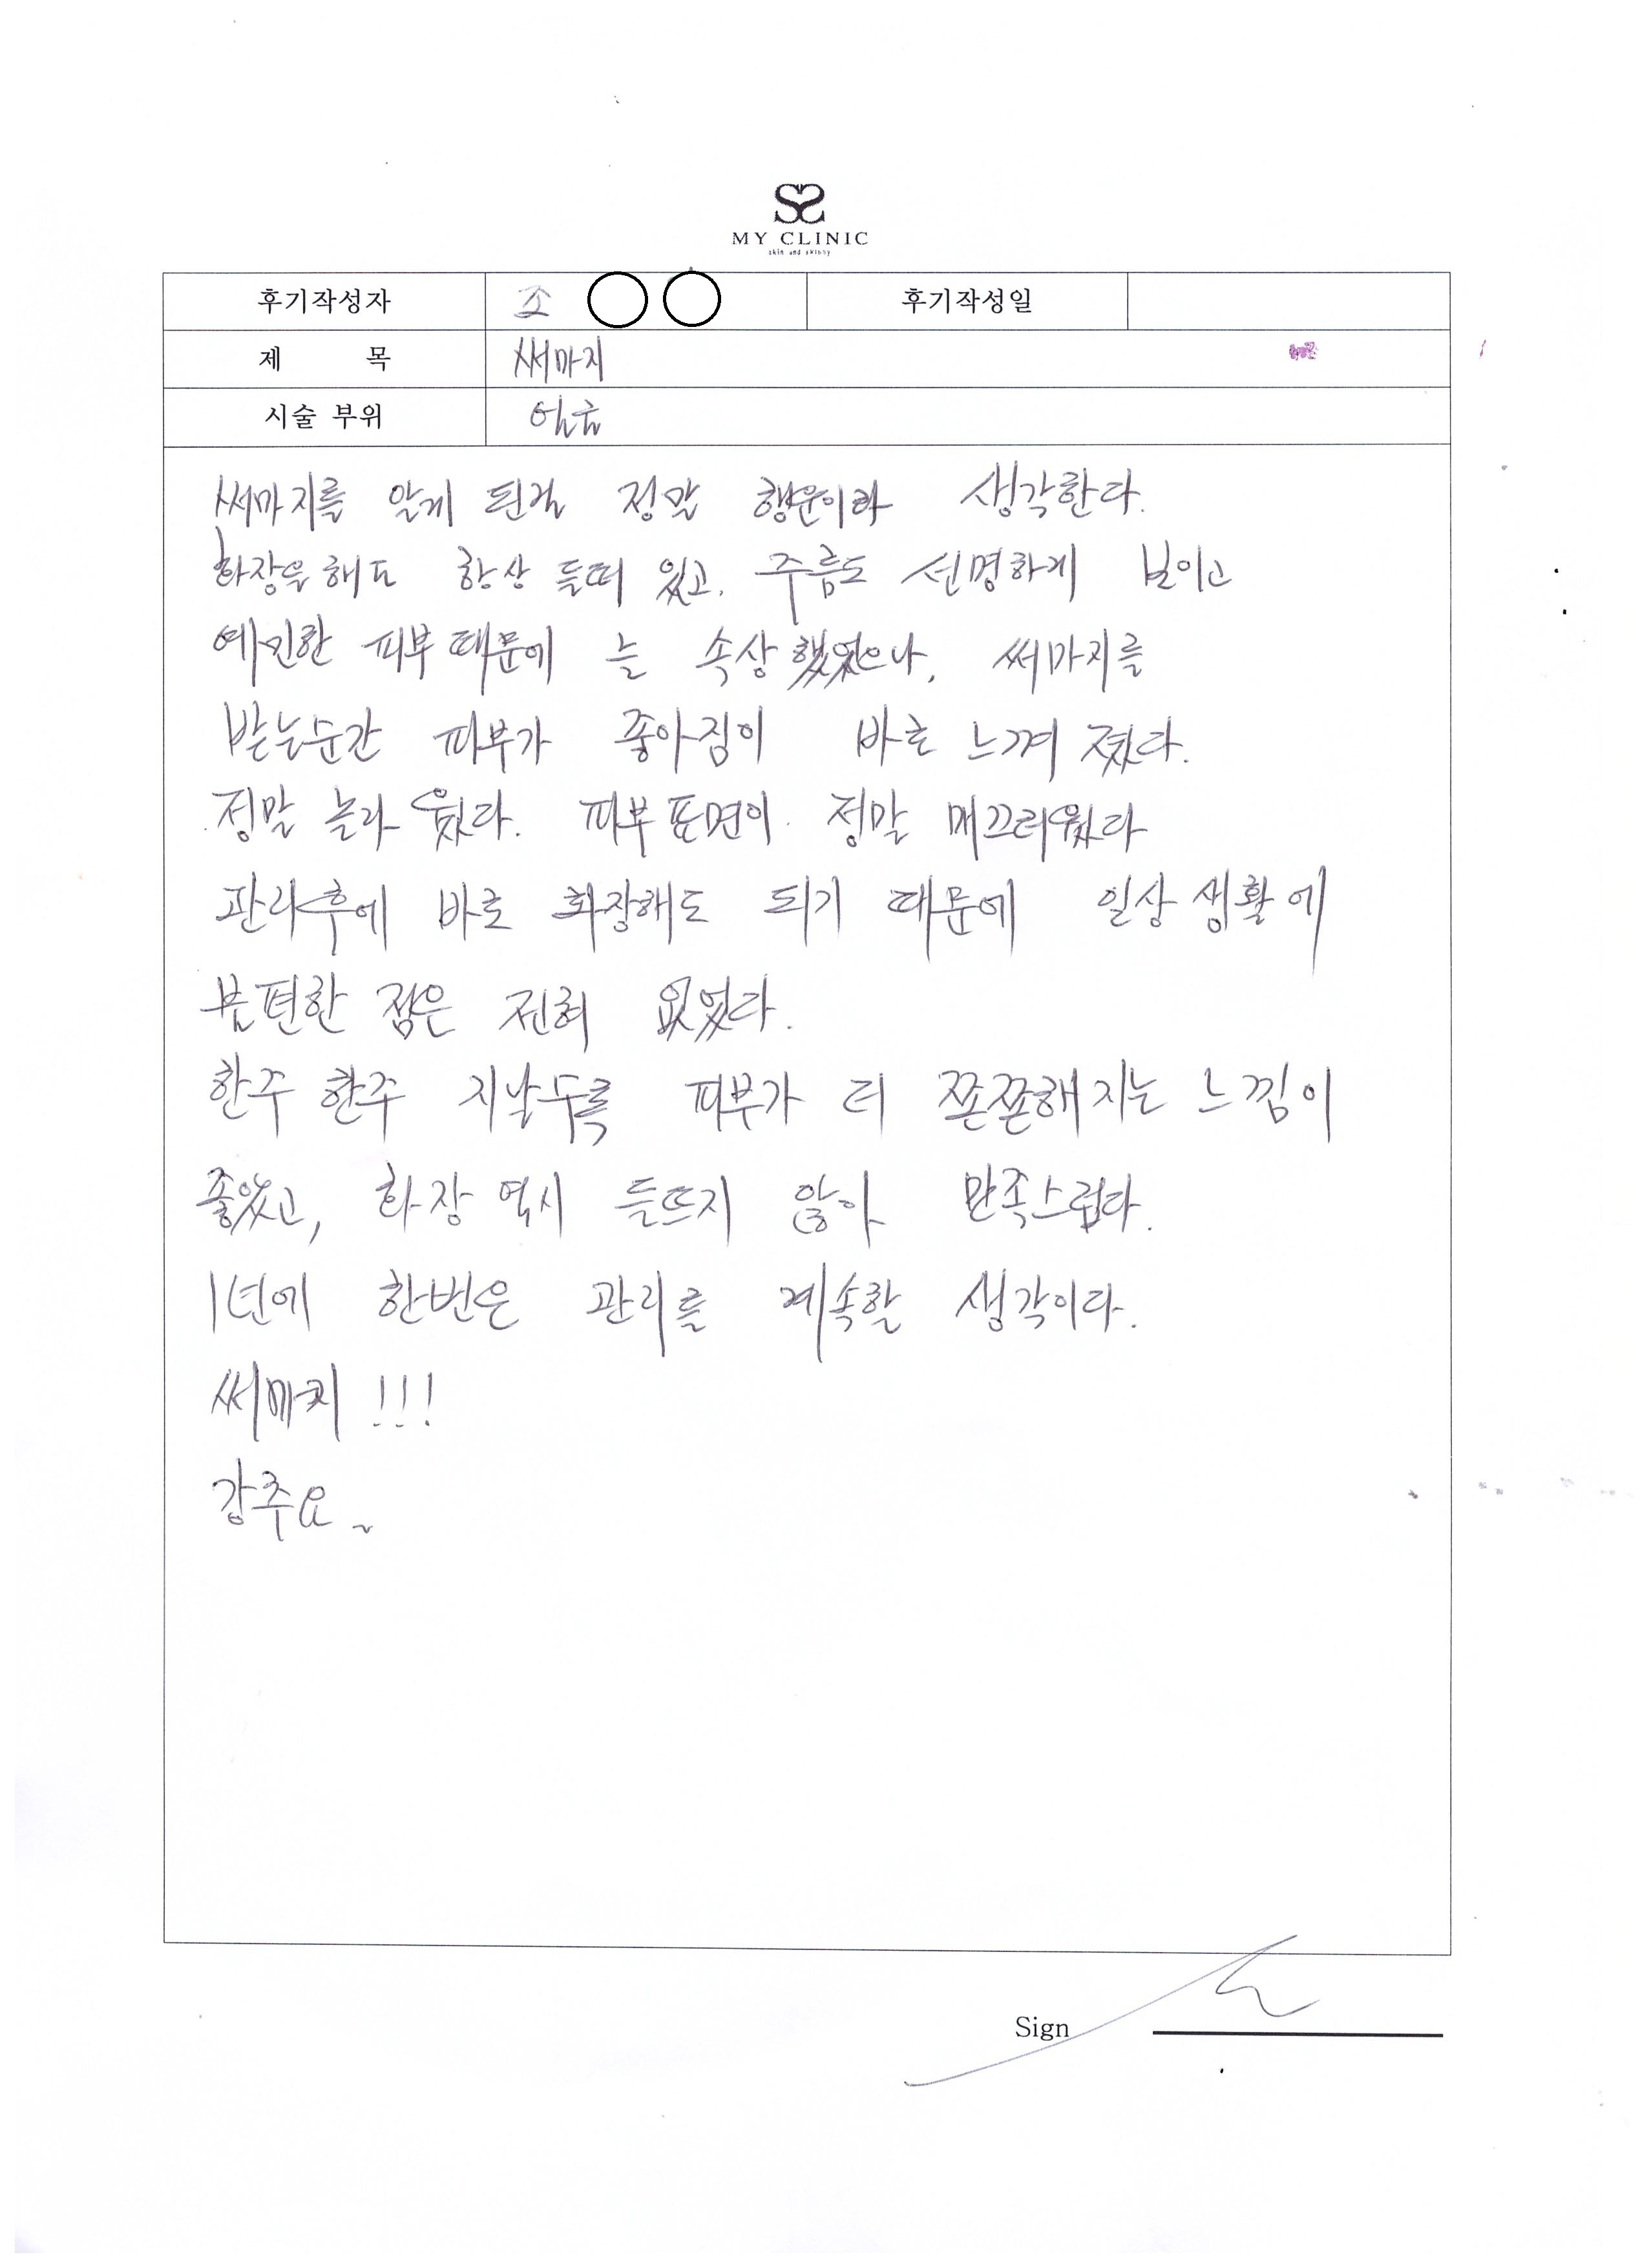 MY CLINIC
skin and skinny
후기작성자 조 ○ ○ 후기작성일
제 목 써마지
시술 부위 얼굴
써마지를 알게 된걸 정말 행운이라 생각한다.
화장을 해도 항상 들떠 있고, 주름도 선명하게 보이고
예민한 피부 때문에 늘 속상했었으나, 써마지를
받는순간 피부가 좋아짐이 바로 느껴 졌다.
정말 놀라웠다. 피부 표면이 정말 매끄러웠다
관리후에 바로 화장해도 되기 때문에 일상 생활에
불편한 점은 전혀 없었다.
한주 한주 지날수록 피부가 더 쫀쫀해 지는 느낌이
좋았고, 화장 역시 들뜨지 않아 만족스럽다.
1년에 한번은 관리를 계속할 생각이다.
써마지 !!!
강추요~
Sign